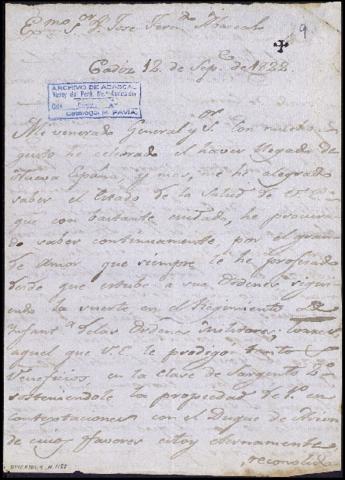 Exmo Sor D. José Ferndo Abascal
9
Cadiz 12 de Sepe de 1822
ARCHIVO DE ABASCAL
Virrey del Perú
PAVIA
Mi venerado General y Sor con mucho
gusto he celebrado el haver llegado de
Nueva España, y mas, me he alegrado
saber el Estado de la Salud de
que con bastante cuidado, he procura-
do saber continuamente por el gran-
de Amor que siempre le he profesado
desde que estube a sus Ordenes sigui-
endo la suerte en el Regimiento de
Infanta delas Ordenes Militares, como
aquel que V.E. le prodigo tanto
Beneficios, en la clase de Sargento
sosteniendole la propiedad de 1o en
contextaciones con el Duque de
de cuios favores estoy eternamente
reconocido